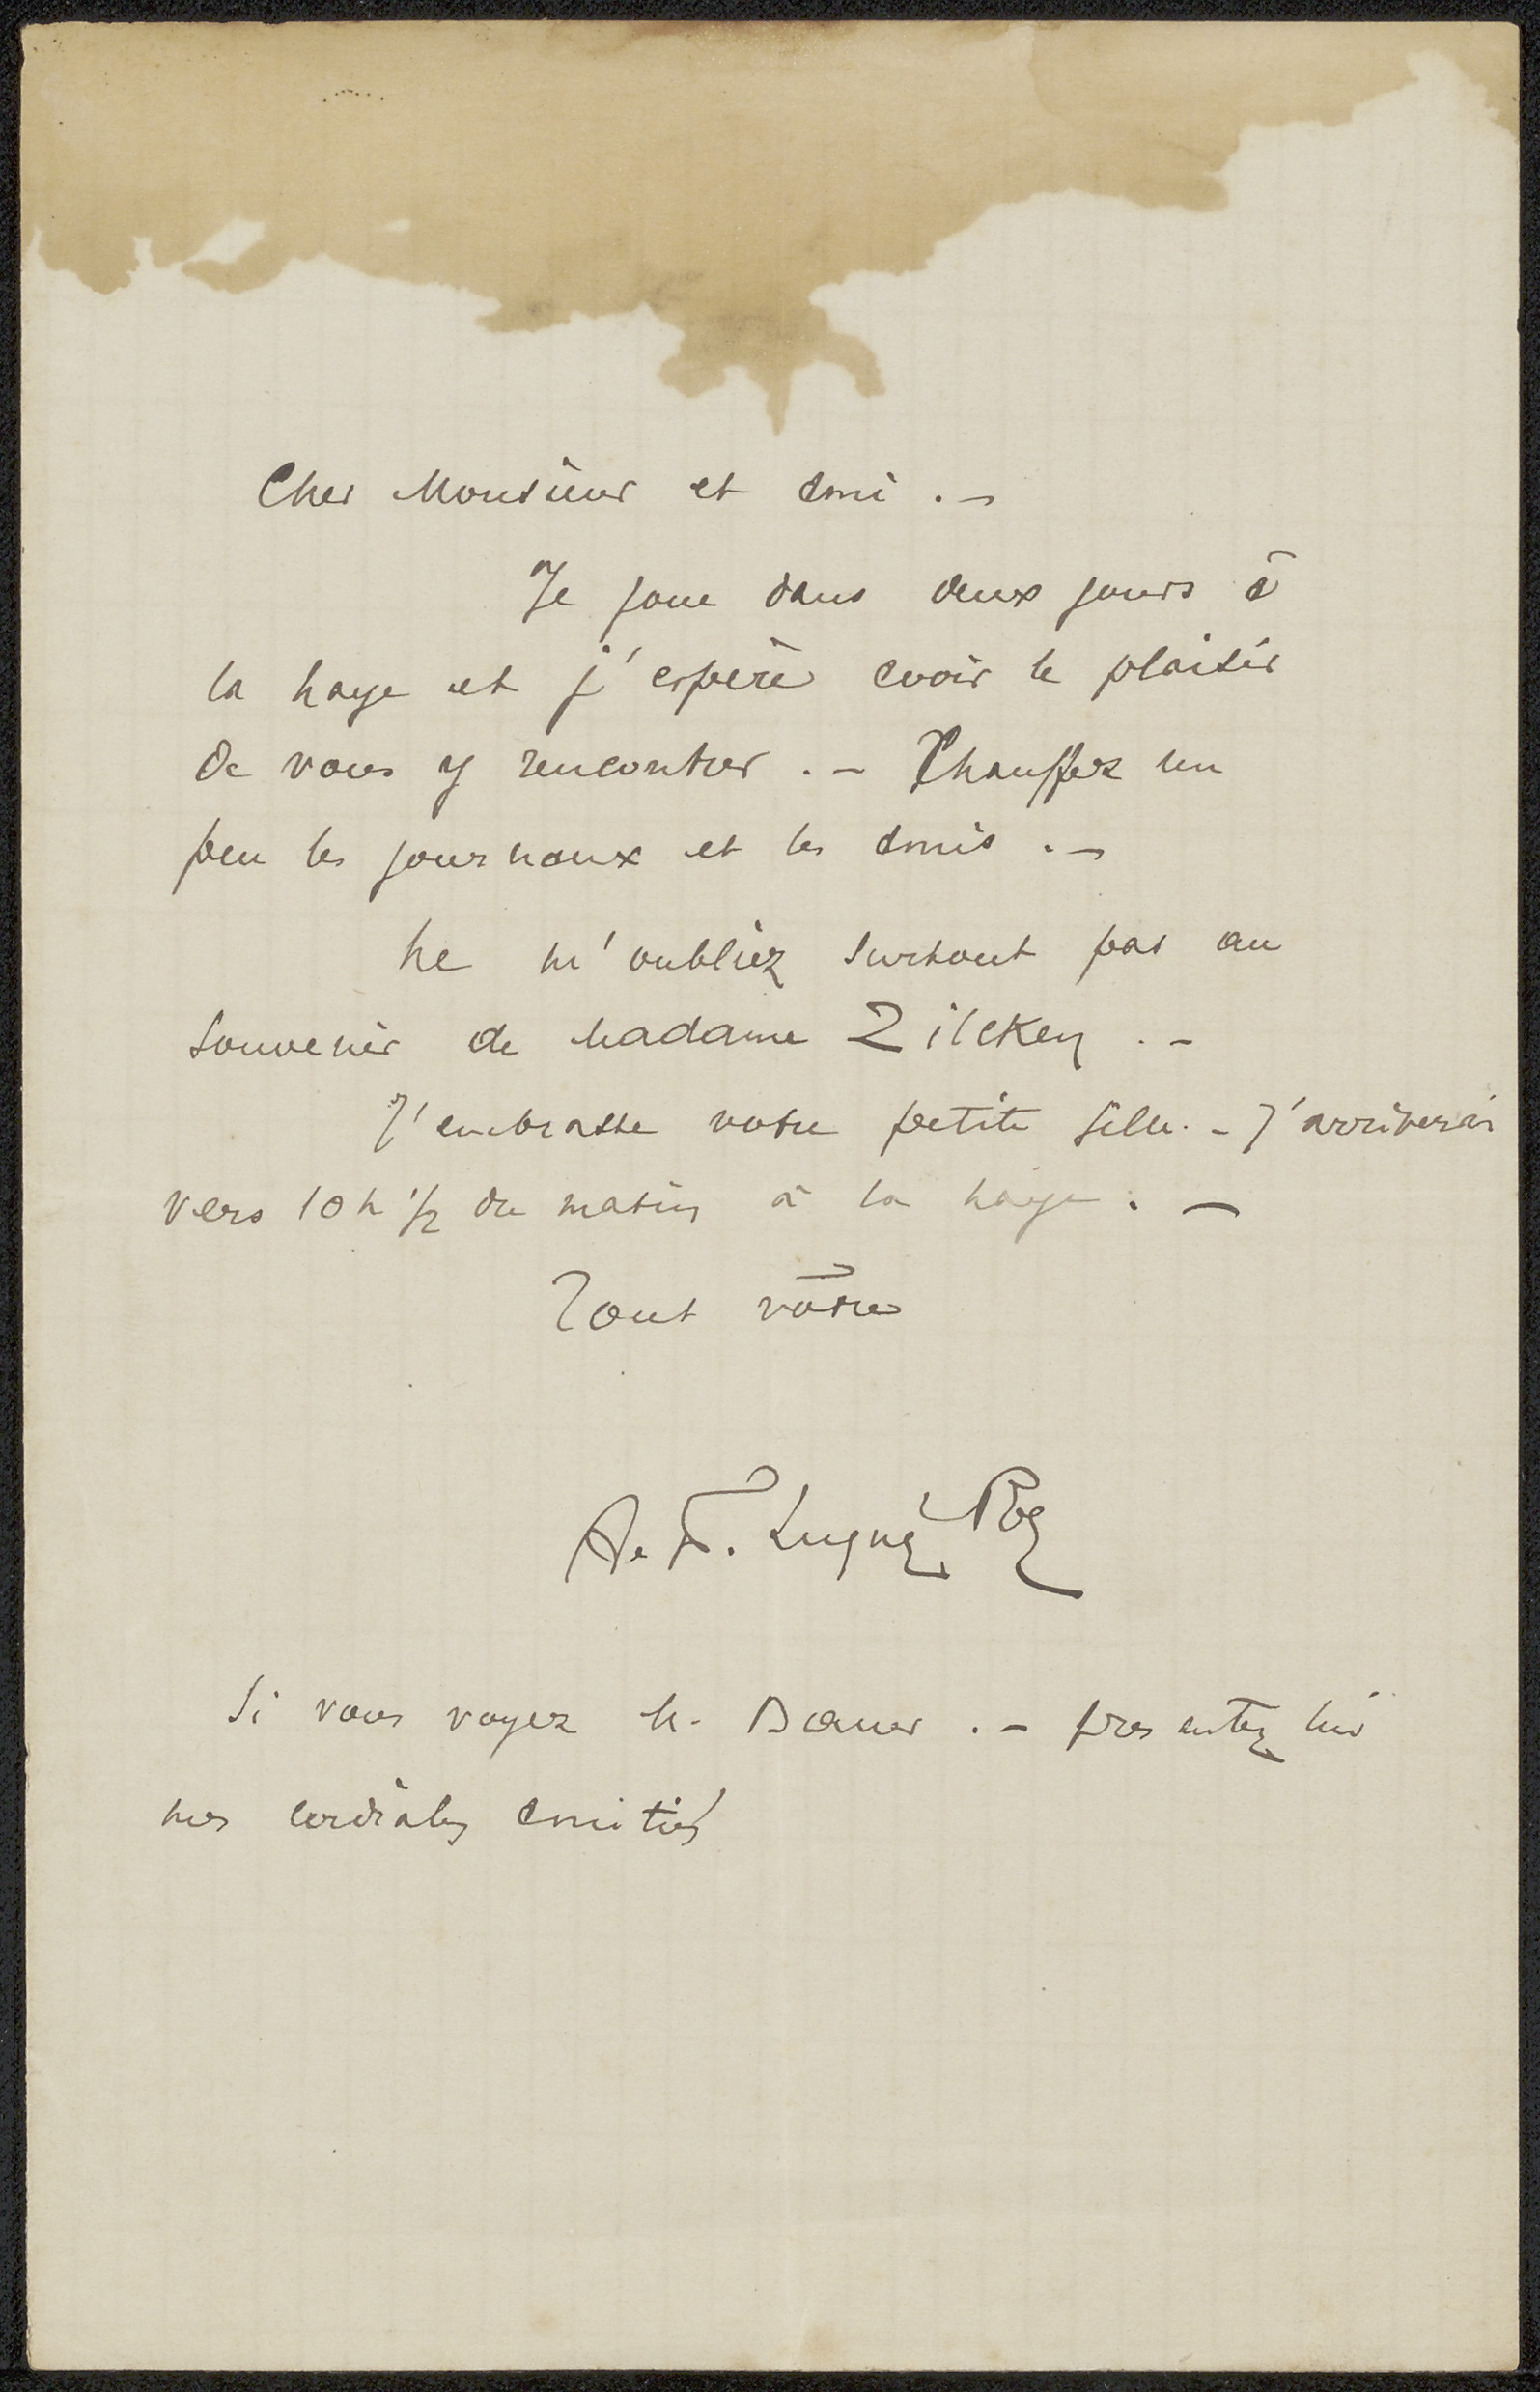 Cher Monsieur et ami . –
Je joue dans deux jours à
la haye et j'espère avoir le plaisir
de vous y rencontrer . – Chauffez un
peu les journaux et les amis . –
Ne m'oubliez surtout pas au
souvenir de Madame Zilcken . –
J'embrasse votre petite fille . – J'arriverai
vers 10 h ½ du matin à la haye . –
Tout vôtre
A. F. Lugné Poe
Si vous voyez M. Bauer . – presentez lui
mes cordiales amitiés